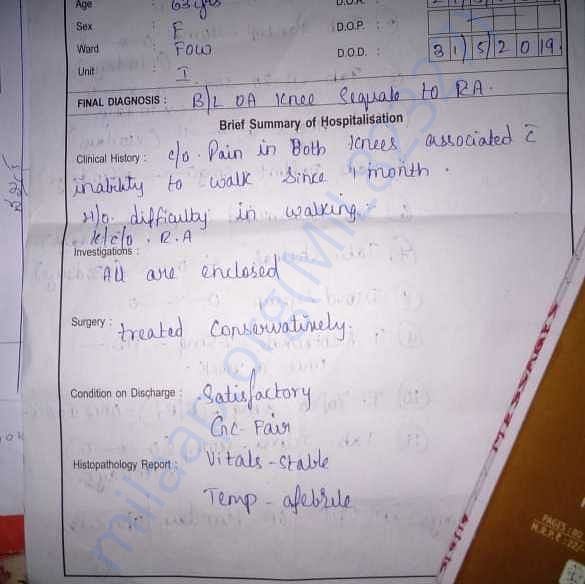 Age 63 yrs
Sex : F D.O.P. :
Ward : FOW D.O.D. : 31/5/2019
Unit : I
FINAL DIAGNOSIS : B/L OA Knee Sequale to RA.
Brief Summary of Hospitalisation
Clinical History : c/o. Pain in Both Knees associated c̄
inability to walk since 1 month.
H/o. difficulty in walking.
K/c/o. R.A
Investigations :
All are enclosed
Surgery : treated conservatively.
Condition on Discharge : Satisfactory
GC - Fair
Histopathology Report : Vitals - Stable
Temp - afebrile
milaap.org
MESSAGES
PAGES :
M.R.P. :